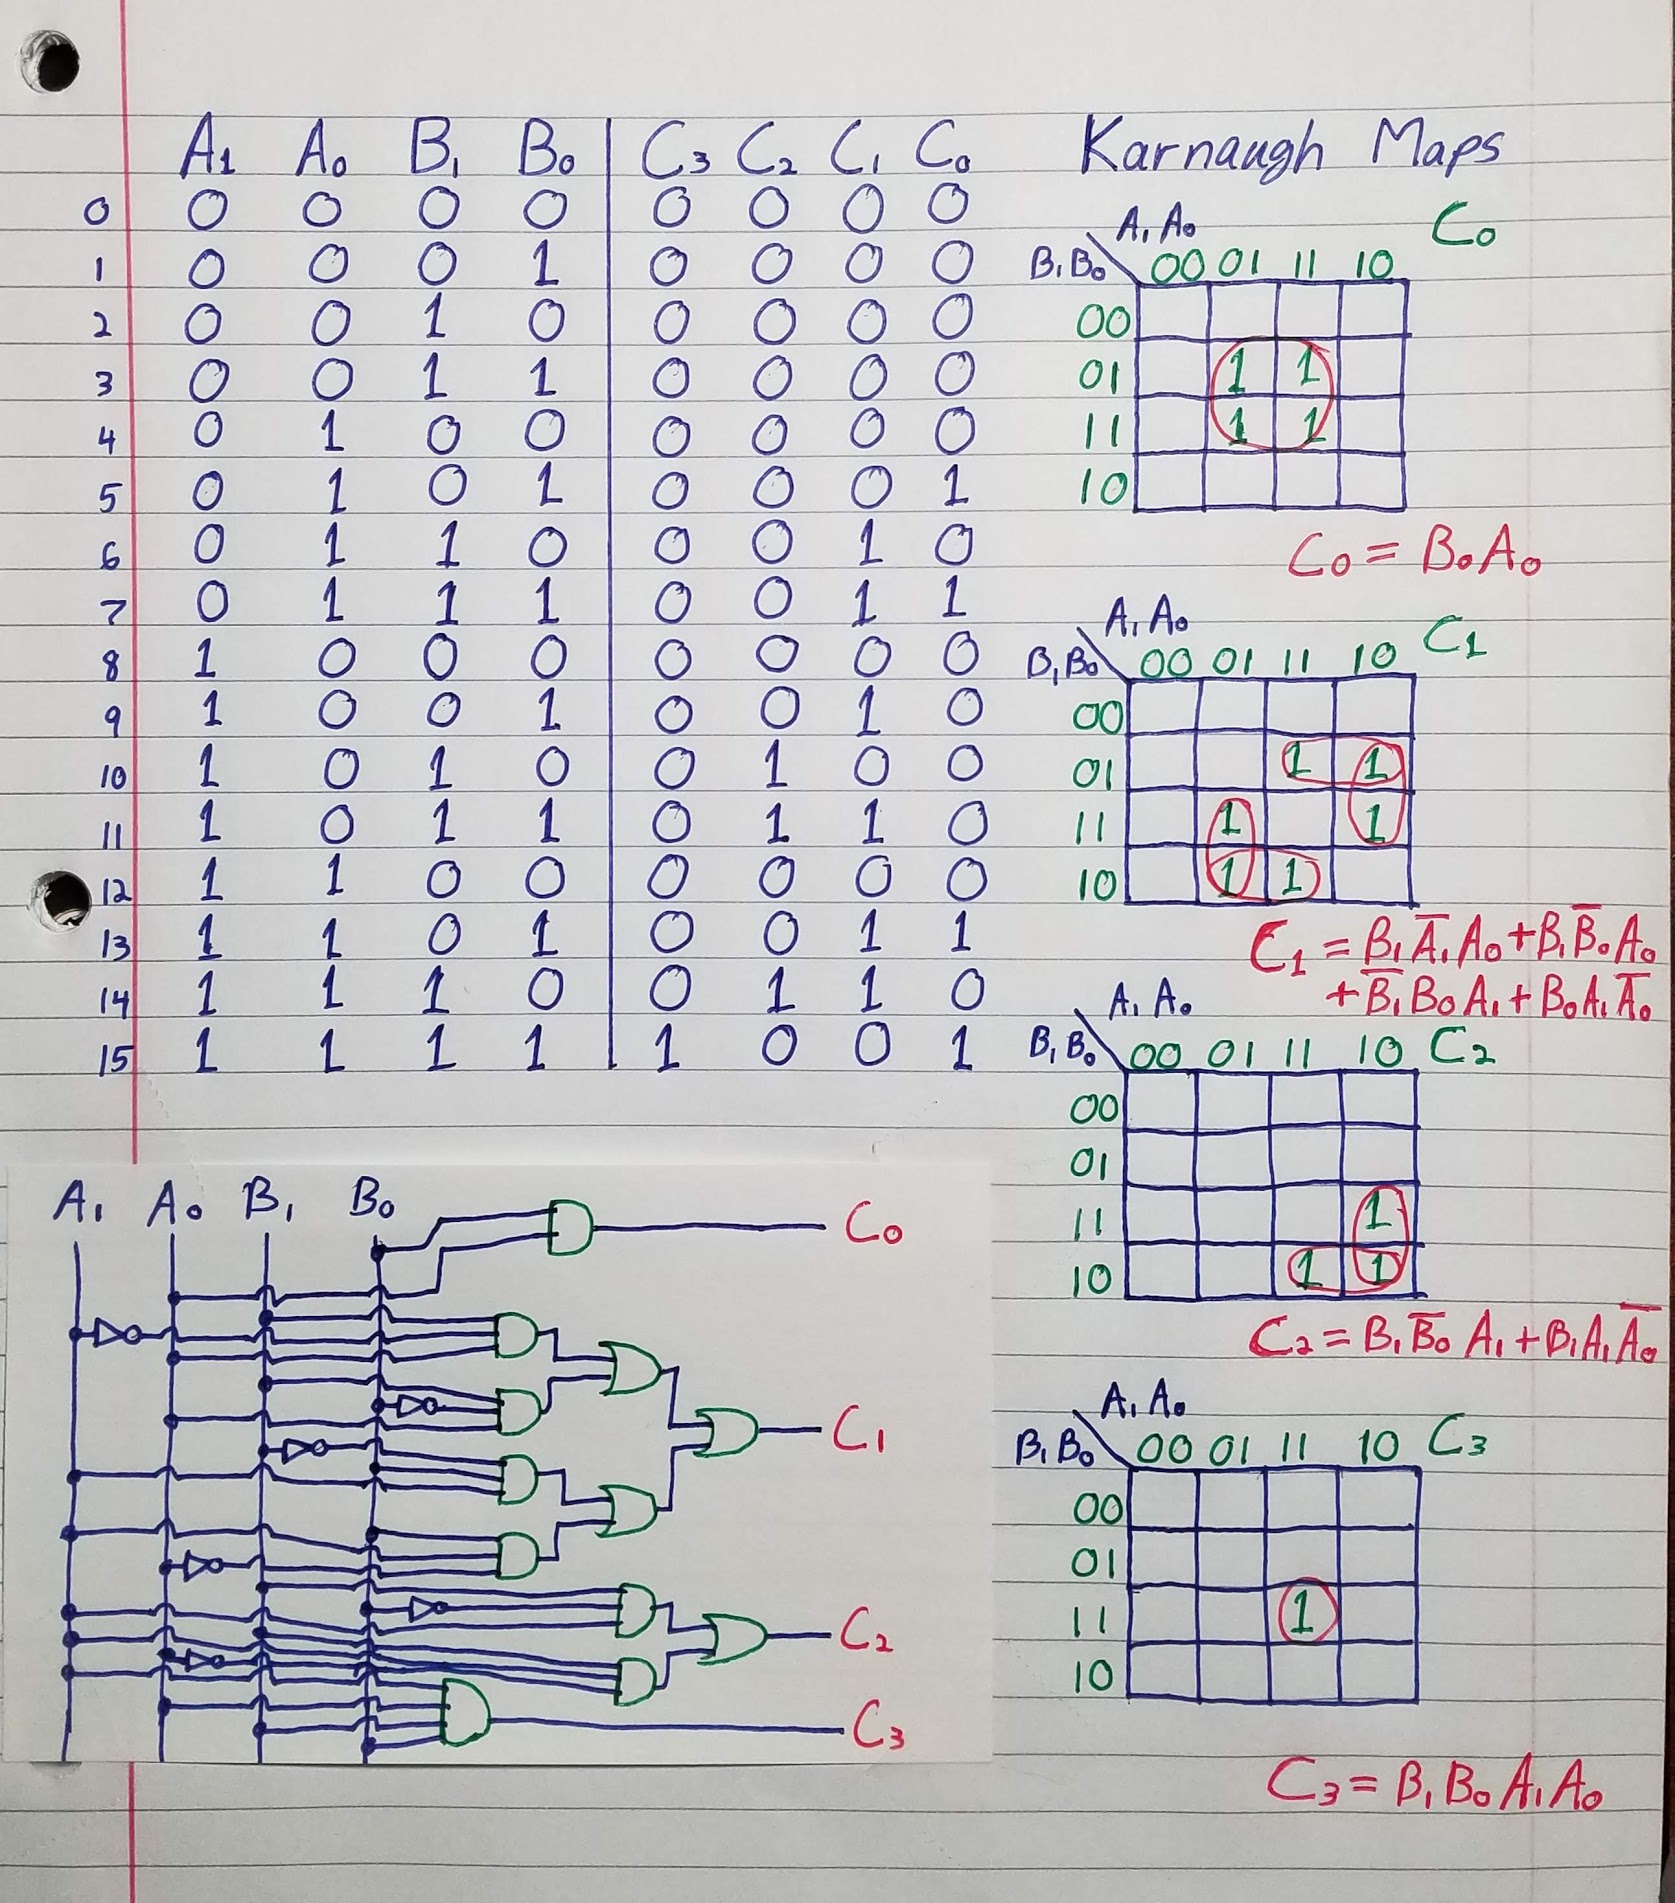 A₁ A₀ B₁ B₀ C₃ C₂ C₁ C₀
0 0 0 0 0 0 0 0 0
1 0 0 0 1 0 0 0 0
2 0 0 1 0 0 0 0 0
3 0 0 1 1 0 0 0 0
4 0 1 0 0 0 0 0 0
5 0 1 0 1 0 0 0 1
6 0 1 1 0 0 0 1 0
7 0 1 1 1 0 0 1 1
8 1 0 0 0 0 0 0 0
9 1 0 0 1 0 0 1 0
10 1 0 1 0 0 1 0 0
11 1 0 1 1 0 1 1 0
12 1 1 0 0 0 0 0 0
13 1 1 0 1 0 0 1 1
14 1 1 1 0 0 1 1 0
15 1 1 1 1 1 0 0 1
Karnaugh Maps
A₁A₀ C₀
B₁B₀ 00 01 11 10
00
01 1 1
11 1 1
10
C₀ = B₀A₀
A₁A₀ C₁
B₁B₀ 00 01 11 10
00
01 1 1
11 1 1
10 1 1
C₁ = B₁A̅₁A₀ + B₁B̅₀A₀
+ B̅₁B₀A₁ + B₀A₁A̅₀
A₁A₀
B₁B₀ 00 01 11 10 C₂
00
01
11 1
10 1 1
C₂ = B₁B̅₀A₁ + B₁A₁A̅₀
A₁A₀
B₁B₀ 00 01 11 10 C₃
00
01
11 1
10
C₃ = B₁B₀A₁A₀
A₁ A₀ B₁ B₀
C₀
C₁
C₂
C₃